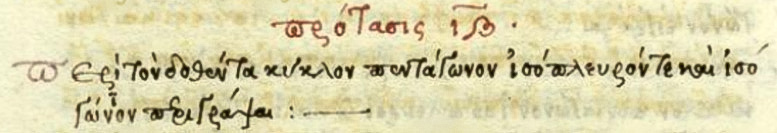 πρότασις ιβ.
Περὶ τὸν δοθέντα κύκλον πεντάγωνον ἰσόπλευρόν τε καὶ ἰσο
γώνιον περιγράψαι :—